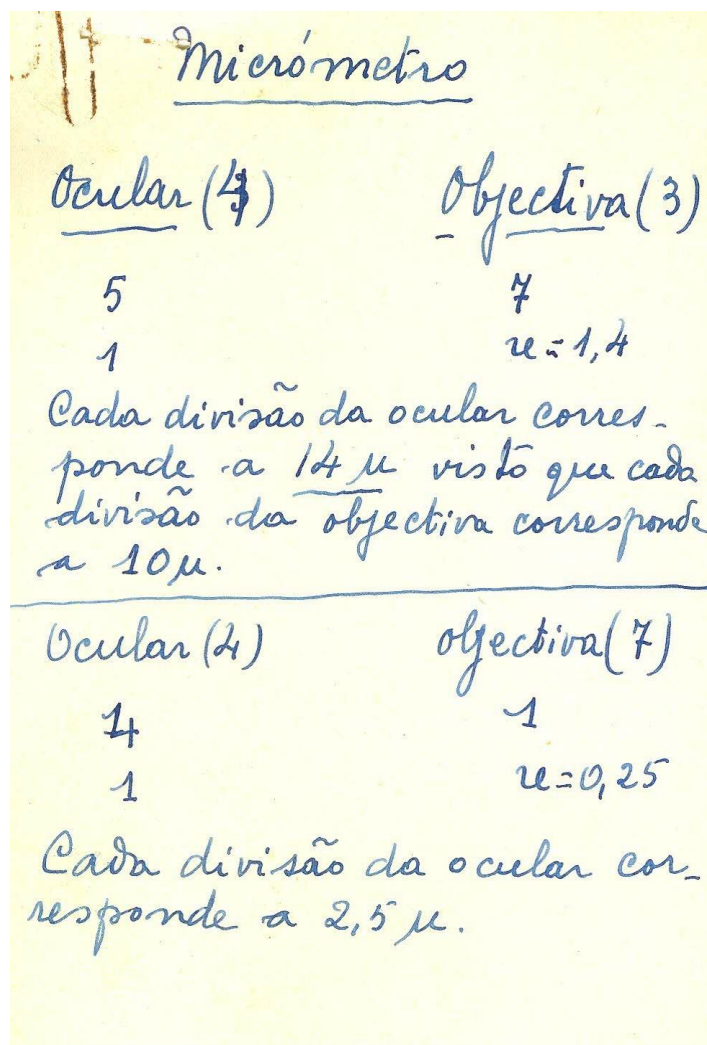 Micrómetro
Ocular (4) Objectiva (3)
5 7
1 x = 1,4
Cada divisão da ocular corres-
ponde a 14 µ visto que cada
divisão da objectiva corresponde
a 10 µ.
Ocular (4) objectiva (7)
4 1
1 x = 0,25
Cada divisão da ocular cor-
responde a 2,5 µ.